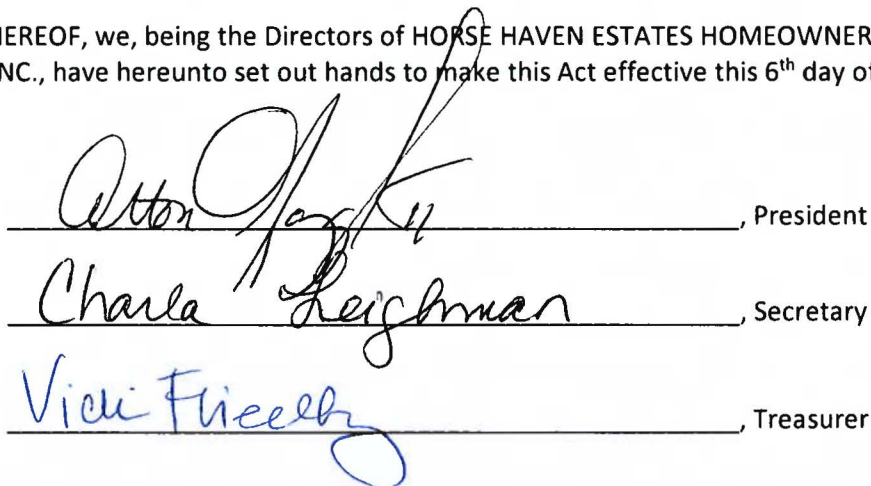 HEREOF, we, being the Directors of HORSE HAVEN ESTATES HOMEOWNER
NC., have hereunto set out hands to make this Act effective this 6th day of
, President
Charla Leighman, Secretary
Vicki, Treasurer